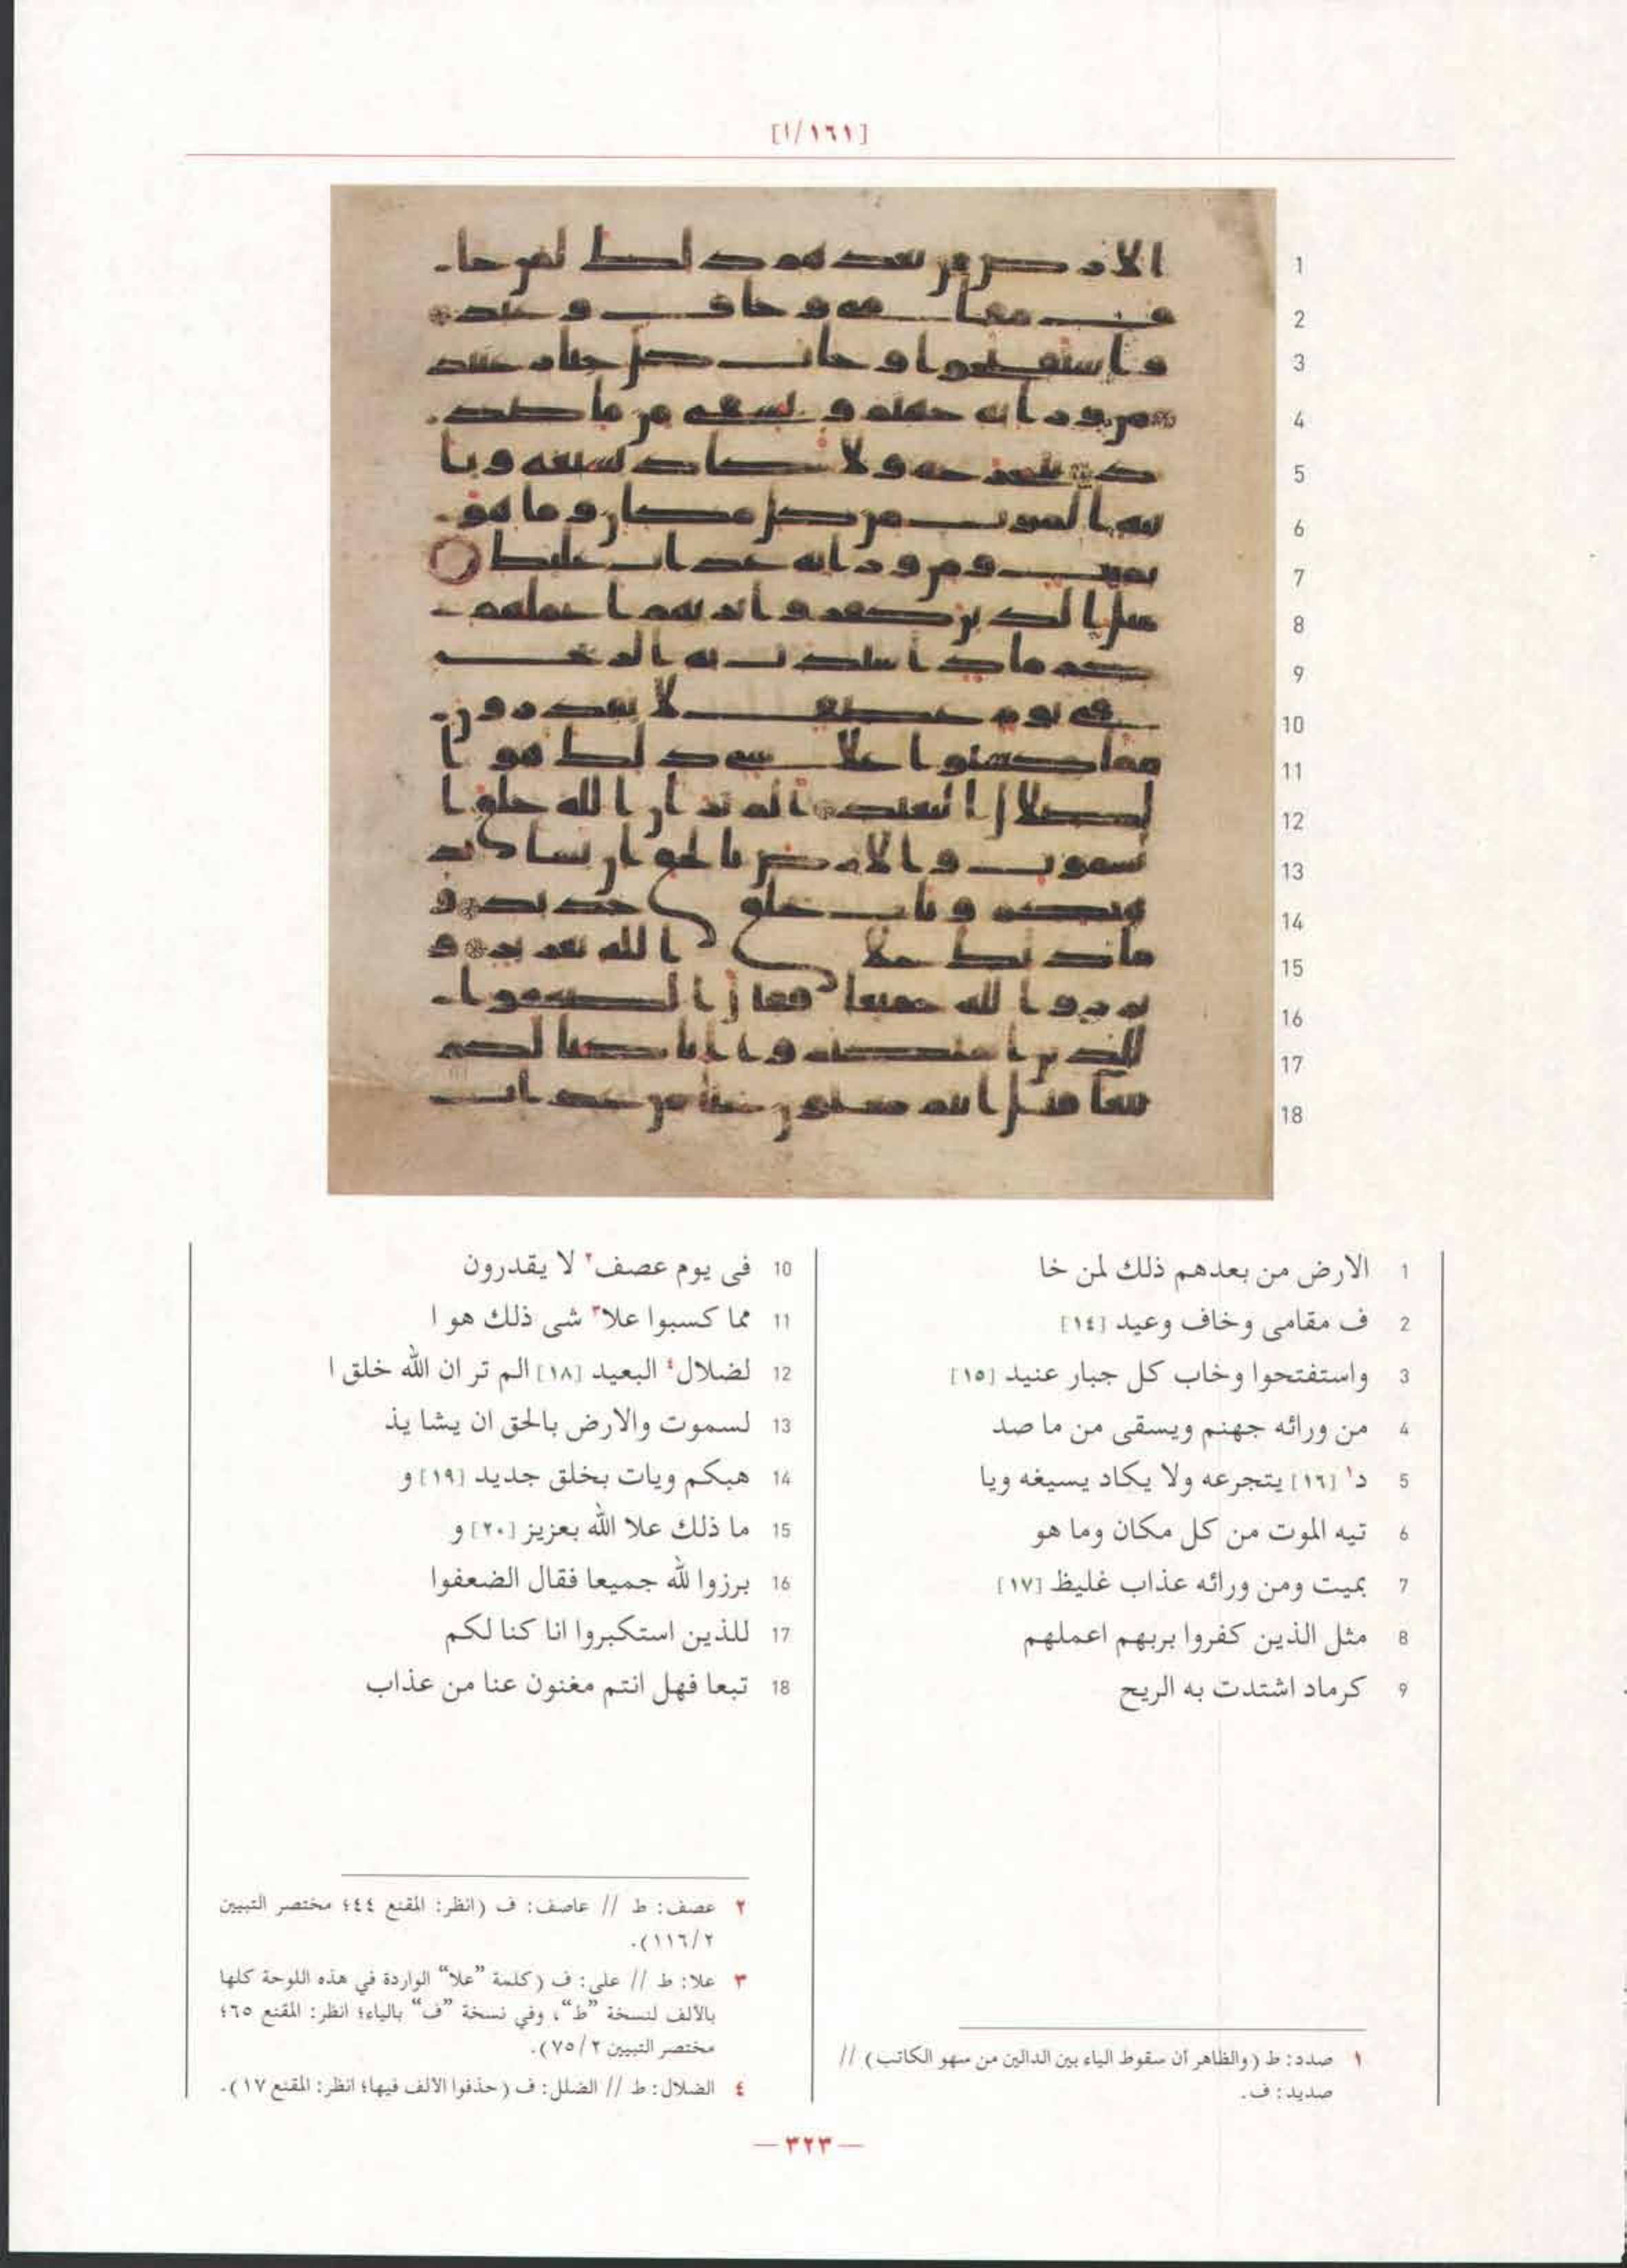 [١٦١/ا]
1 الارض من بعدهم ذلك لمن خا
2 ف مقامى وخاف وعيد [١٤]
3 واستفتحوا وخاب كل جبار عنيد [١٥]
4 من ورائه جهنم ويسقى من ما صد
5 د١ [١٦] يتجرعه ولا يكاد يسيغه ويا
6 تيه الموت من كل مكان وما هو
7 بميت ومن ورائه عذاب غليظ [١٧]
8 مثل الذين كفروا بربهم اعملهم
9 كرماد اشتدت به الريح
10 فى يوم عصف٢ لا يقدرون
11 مما كسبوا علا٣ شى ذلك هو ا
12 لضلال٤ البعيد [١٨] الم تر ان الله خلق ا
13 لسموت والارض بالحق ان يشا يذ
14 هبكم ويات بخلق جديد [١٩] و
15 ما ذلك علا الله بعزيز [٢٠] و
16 برزوا لله جميعا فقال الضعفوا
17 للذين استكبروا انا كنا لكم
18 تبعا فهل انتم مغنون عنا من عذاب
١ صدد: ط (والظاهر أن سقوط الياء بين الدالين من سهو الكاتب) //
صديد: ف.
٢ عصف: ط // عاصف: ف (انظر: المقنع ٤٤؛ مختصر التبيين
١١٦/٢).
٣ علا: ط // على: ف (كلمة "علا" الواردة في هذه اللوحة كلها
بالألف لنسخة "ط"، وفي نسخة "ف" بالياء؛ انظر: المقنع ٦٥؛
مختصر التبيين ٧٥/٢).
٤ الضلال: ط // الضلل: ف (حذفوا الألف فيها؛ انظر: المقنع ١٧).
— ٣٢٣ —